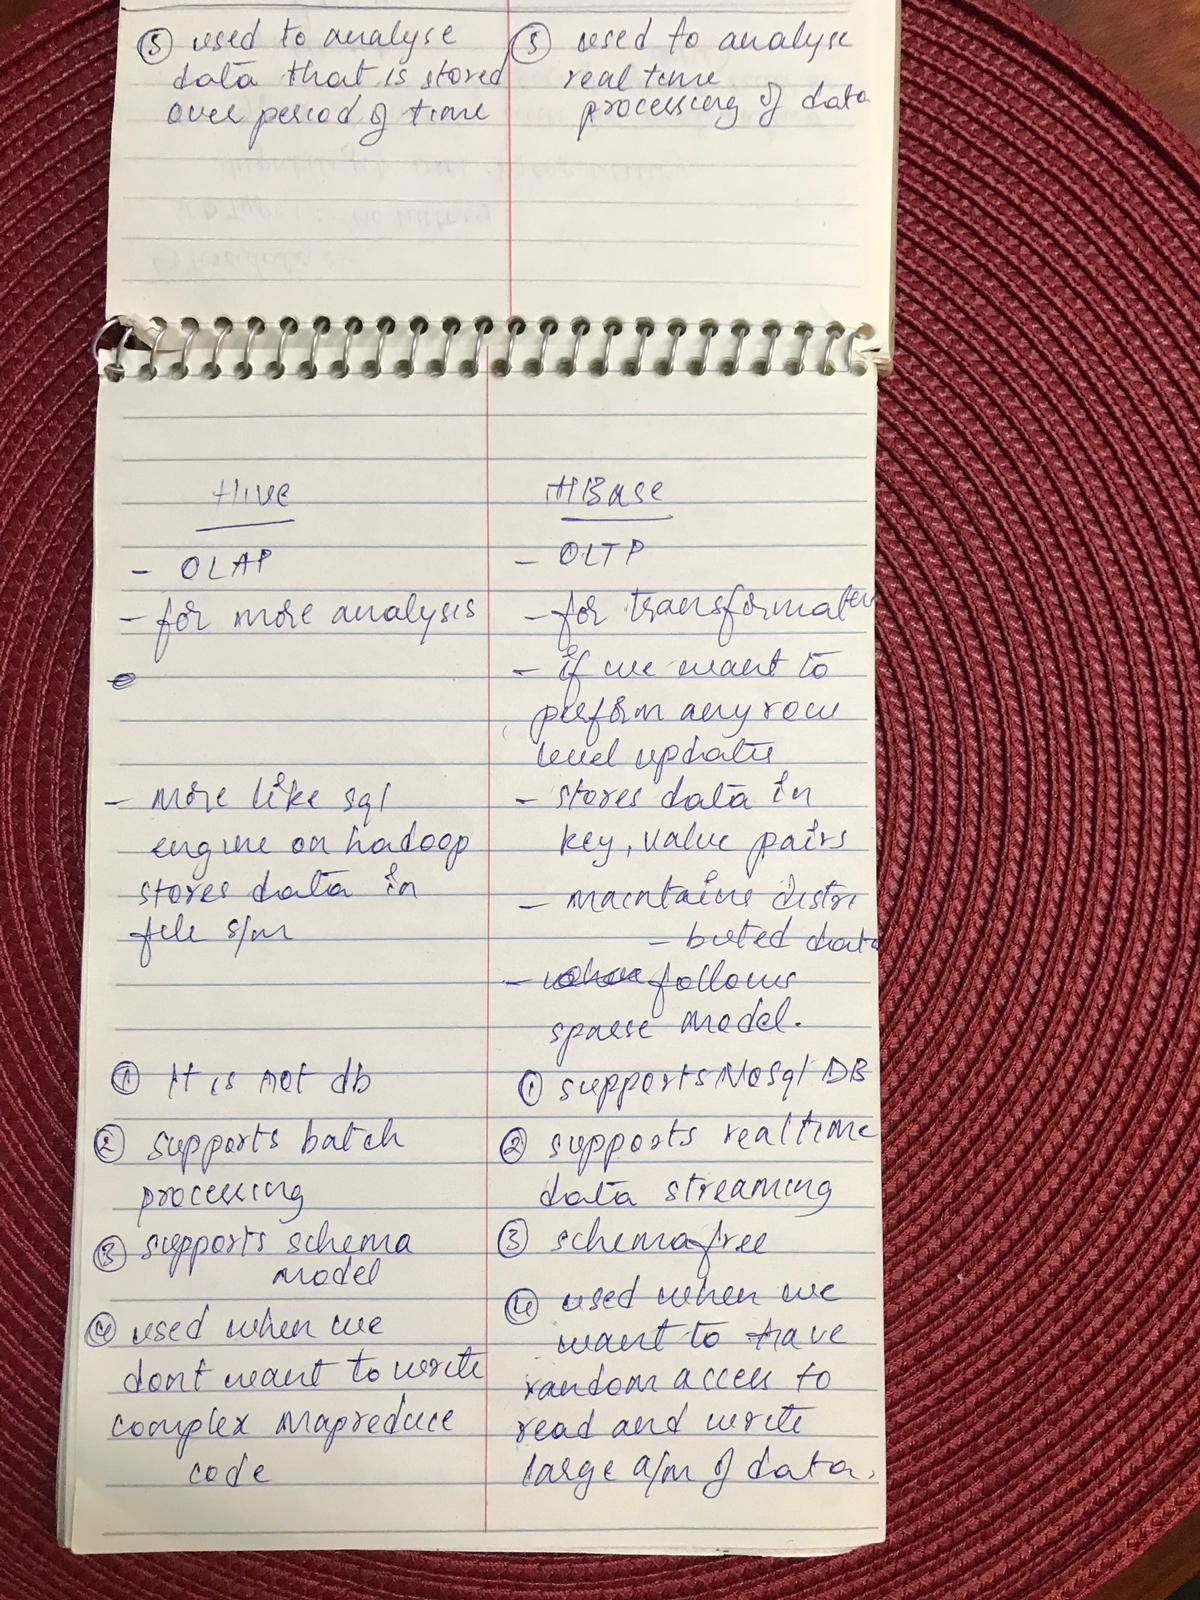 ⑤ used to analyse
data that is stored
over period of time
⑤ used to analyse
real time
processing of data
Hive
- OLAP
- for more analysis
- more like sql
engine on hadoop
stores data in
file s/m
① It is not db
② supports batch
processing
③ supports schema
model
④ used when we
dont want to write
complex mapreduce
code
HBase
- OLTP
- for transformation
- if we want to
perform any row
level update
- stores data in
key, value pairs
- maintains distri
- buted data
- follows
sparse model.
① supports NoSql DB
② supports realtime
data streaming
③ schema free
④ used when we
want to have
random access to
read and write
large a/m of data.